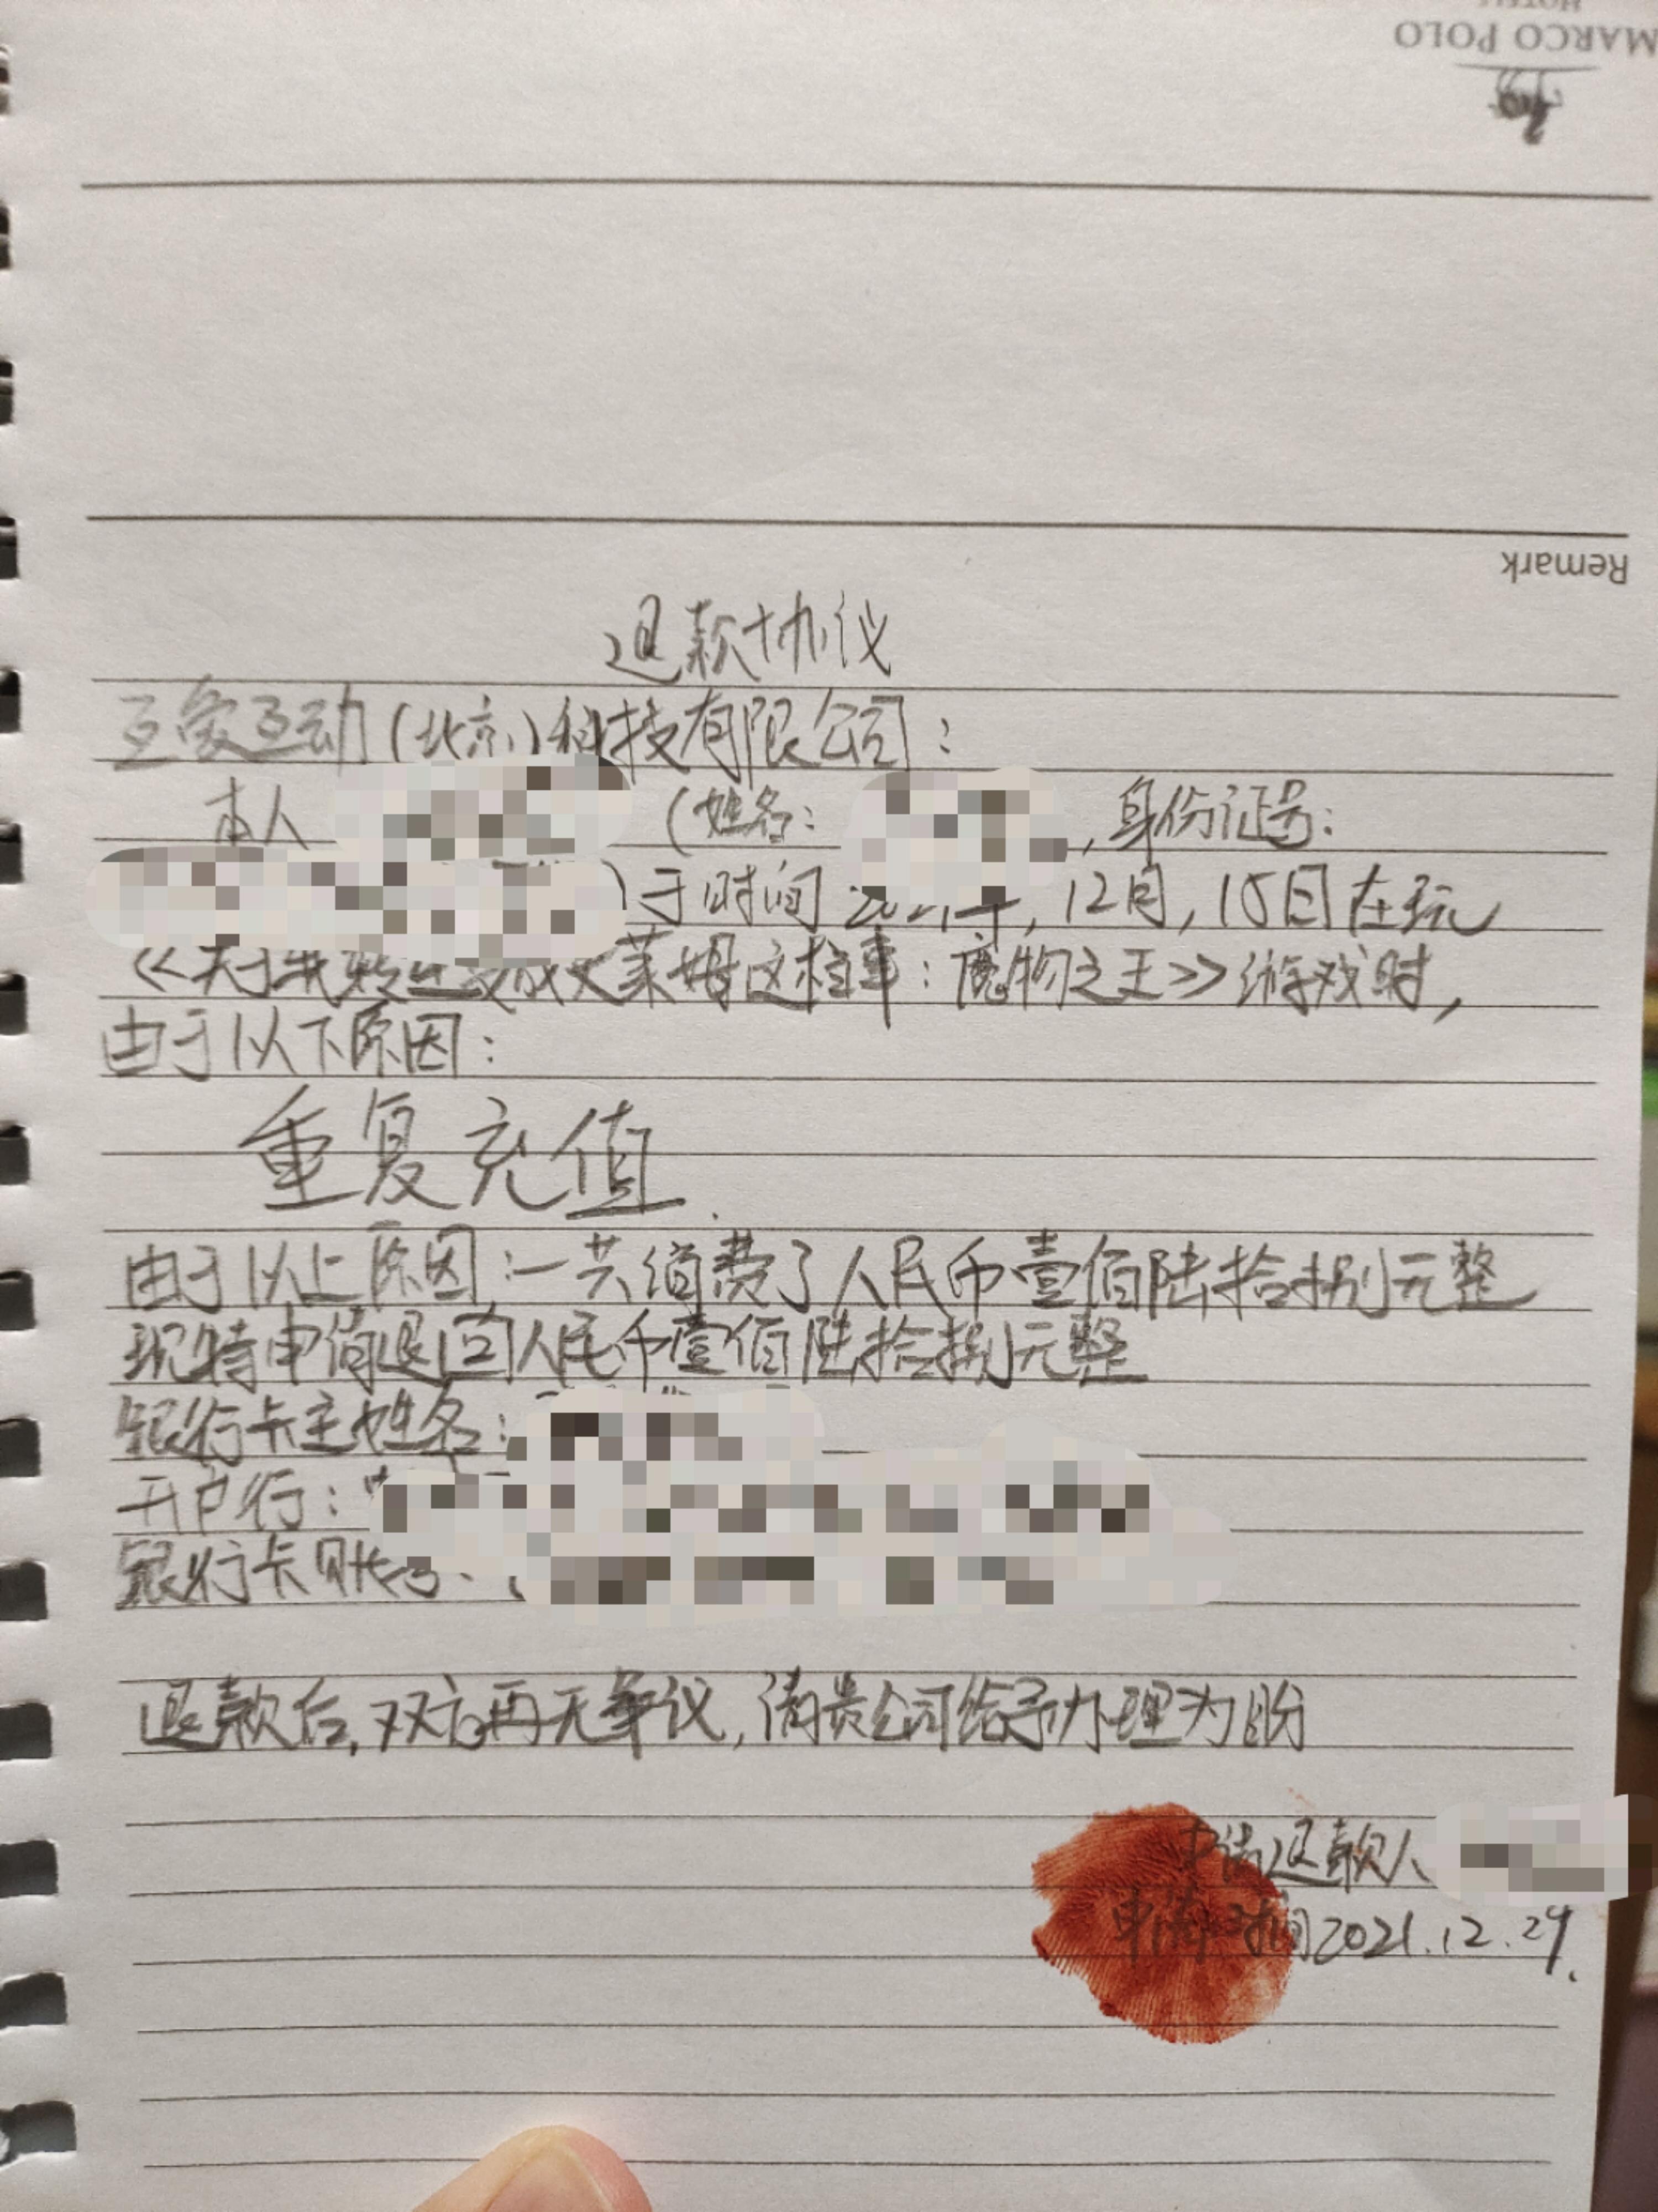 HOTELS
MARCO POLO
Remark
退款协议
互象互动(北京)科技有限公司:
本人 (姓名: ,身份证号:
)于时间 2021年,12月,15日在玩
《关于我转生变成史莱姆这档事:魔物之王》游戏时,
由于以下原因:
重复充值.
由于以上原因:一共消费了人民币壹佰陆拾捌元整
现特申请退回人民币壹佰陆拾捌元整
银行卡主姓名:
开户行:
银行卡账号:
退款后,双方再无争议,请贵公司给予办理为盼
申请退款人
申请时间2021.12.29.